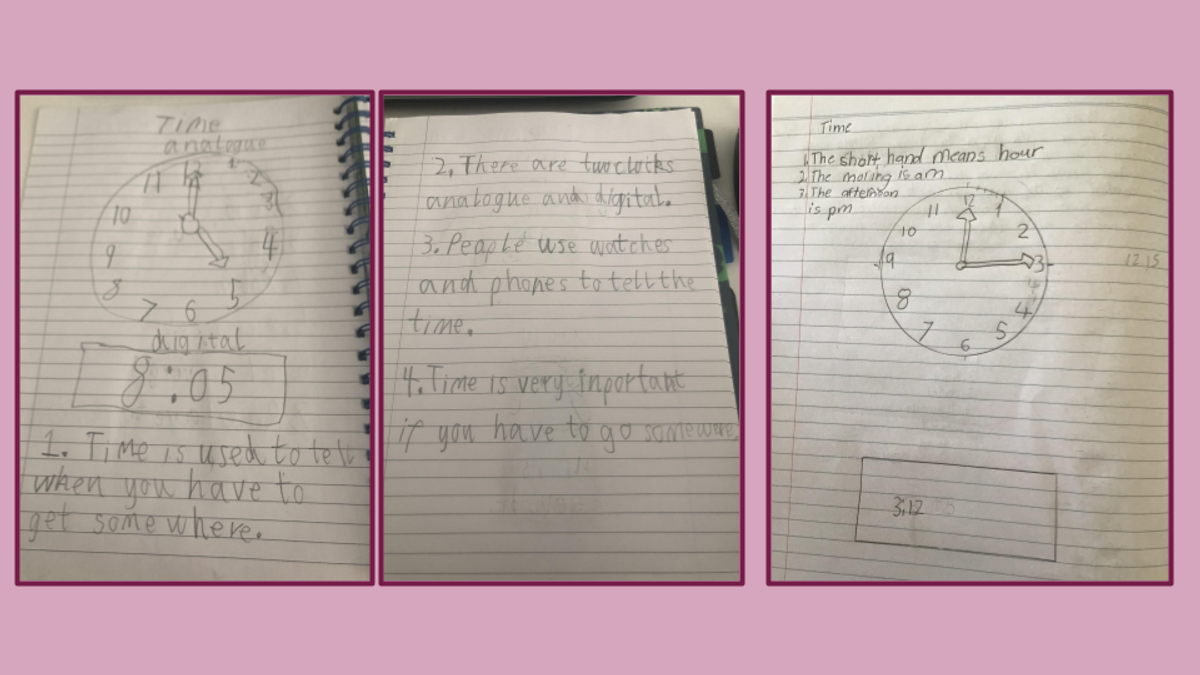 Time
analogue
12
1
2
3
4
5
6
7
8
9
10
11
digital
8:05
1. Time is used to tell
when you have to
get somewhere.
2, There are two clocks
analogue and digital.
3. People use watches
and phones to tell the
time.
4. Time is very inportant
if you have to go somewere.
Time
1. The short hand means hour
2. The moring is am
3. The afternoon
is pm
12
1
2
3
4
5
6
7
8
9
10
11
12 15
3:12